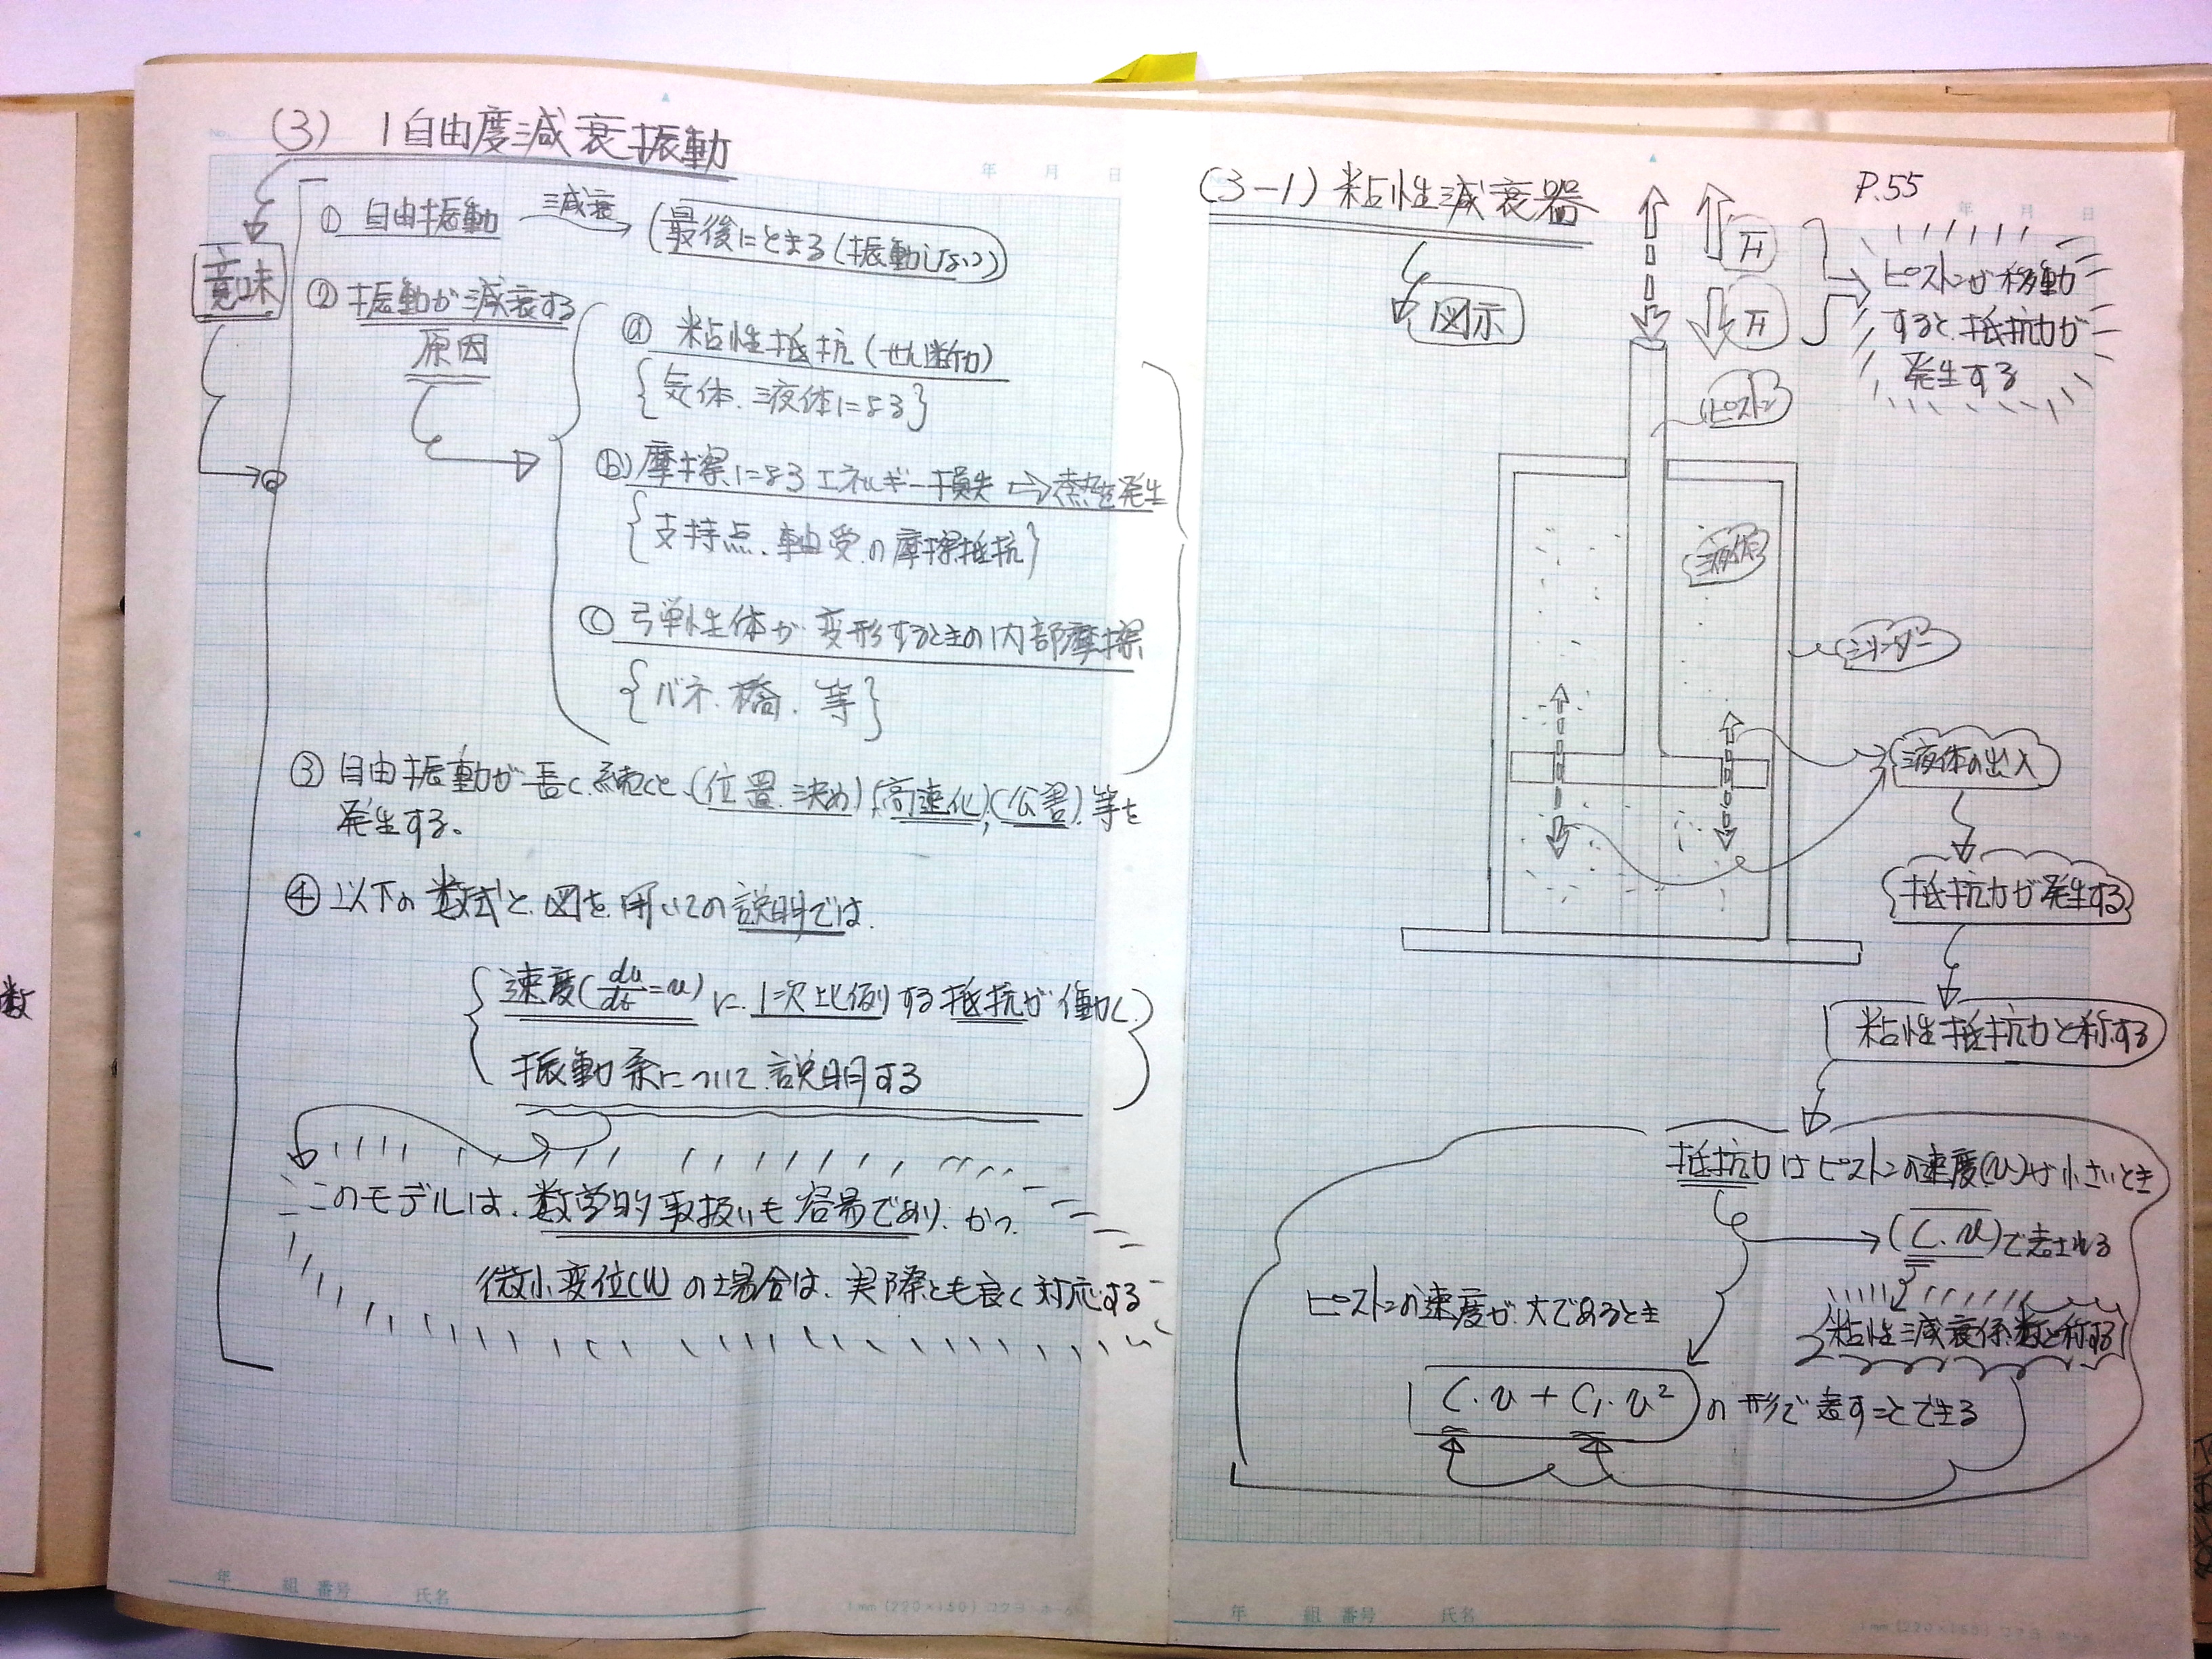 (3) 1自由度減衰振動
意味
① 自由振動 減衰 (最後にとまる(振動しない))
② 振動が減衰する
原因
ⓐ 粘性抵抗(せん断力)
{気体、液体による}
ⓑ 摩擦によるエネルギー損失 ⇨ 熱を発生
{支持点、軸受の摩擦抵抗}
ⓒ 弾性体が変形するときの内部摩擦
{バネ、橋、等}
③ 自由振動が長く続くと、(位置決め)、(高速化)、(公害)、等を
発生する。
④ 以下の数式と、図を用いての説明では、
速度(du/dt=u)に、1次比例する抵抗が働く、
振動系について、説明する
このモデルは、数学的取扱いも容易であり、かつ、
微小変位(u)の場合は、実際とも良く対応する
年 月 日
年 組 番号 氏名
(3-1) 粘性減衰器
P.55
年 月 日
図示
F
F
ピストンが移動
すると、抵抗力が
発生する
ピストン
液体
シリンダー
液体の出入
抵抗力が発生する
粘性抵抗力と称する
抵抗力はピストンの速度(u)が小さいとき
(C・u)で表される
粘性減衰係数と称する
ピストンの速度が、大であるとき
C・u + C₁・u² の形で表すことできる
年 組 番号 氏名
数